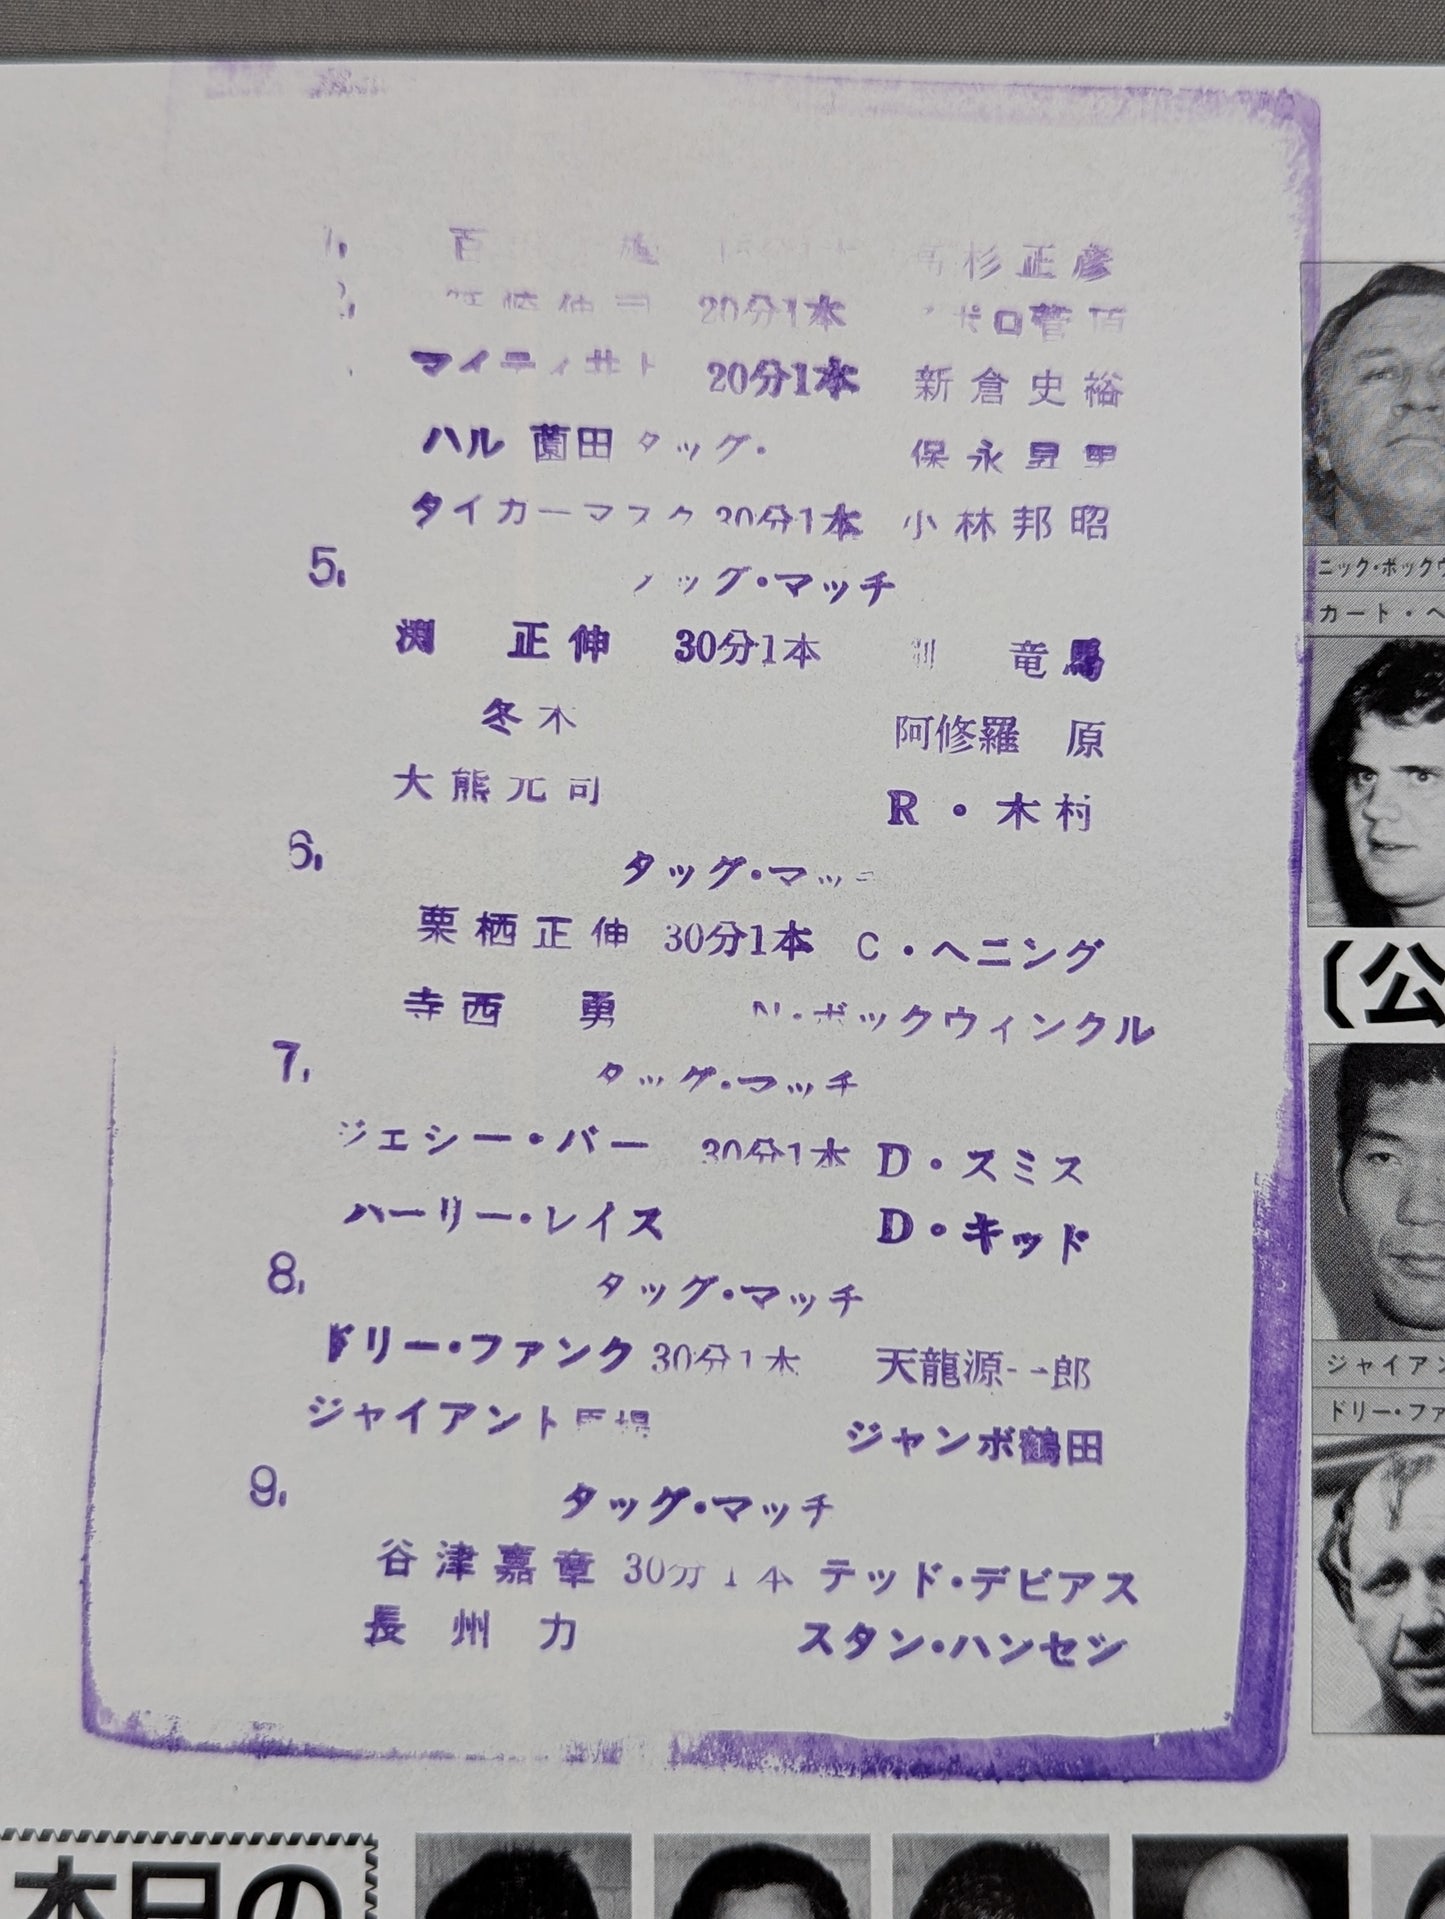 1. 百 杉正彦
2. 20分1本 ポロ菅
マイティ 20分1本 新倉史裕
ハル薗田 タッグ・ 保永昇男
タイガーマスク 30分1本 小林邦昭
5. タッグ・マッチ
渕 正伸 30分1本 竜馬
冬木 阿修羅 原
大熊元司 R・木村
6. タッグ・マッチ
栗栖正伸 30分1本 C・ヘニング
寺西 勇 N・ボックウィンクル
7. タッグ・マッチ
ジェシー・バー 30分1本 D・スミス
ハーリー・レイス D・キッド
8. タッグ・マッチ
ドリー・ファンク 30分1本 天龍源一郎
ジャイアント馬場 ジャンボ鶴田
9. タッグ・マッチ
谷津嘉章 30分1本 テッド・デビアス
長州力 スタン・ハンセン
ニック・ボックウ
カート・ヘ
(公
ジャイアン
ドリー・ファ
本日の